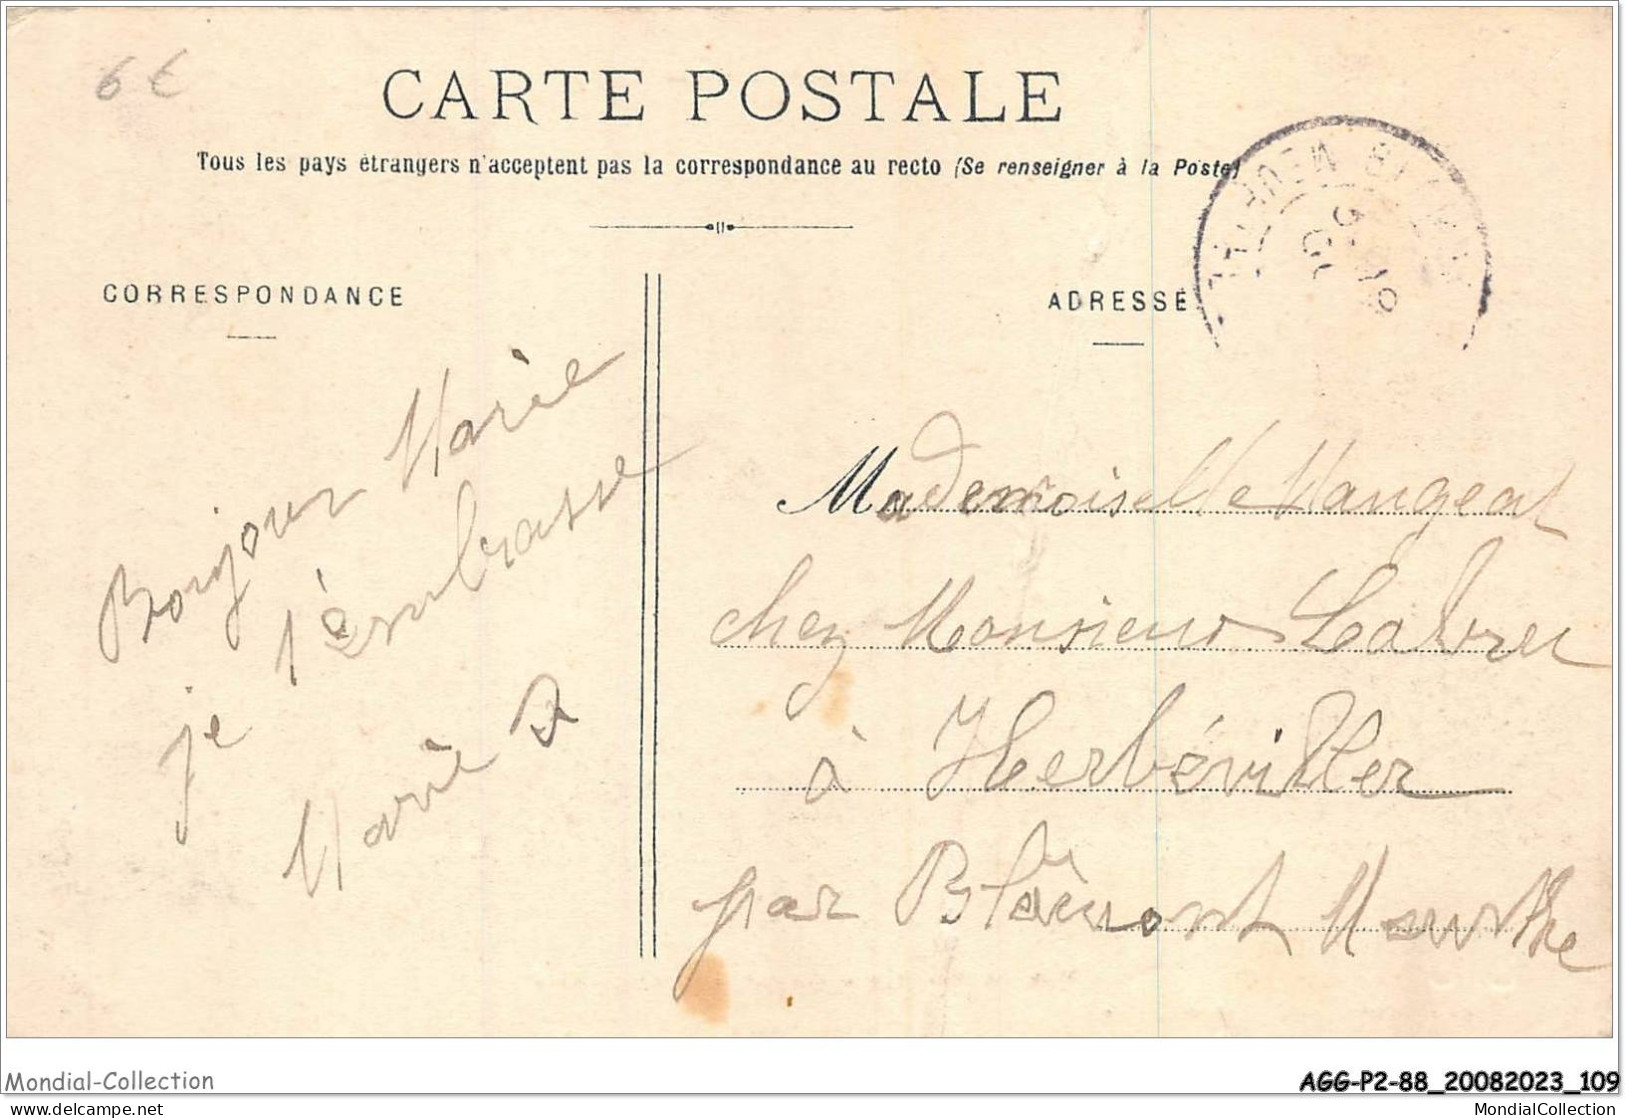 6€
CARTE POSTALE
Tous les pays étrangers n'acceptent pas la correspondance au recto (Se renseigner à la Poste)
CORRESPONDANCE
ADRESSE
Bonjour Marie
je t'embrasse
Marie
Mademoiselle Mangeat
chez Monsieur
à Herbéviller
par Blâmont Meurthe
Mondial-Collection
AGG-P2-88_20082023_109
MondialCollection
MondialCollection